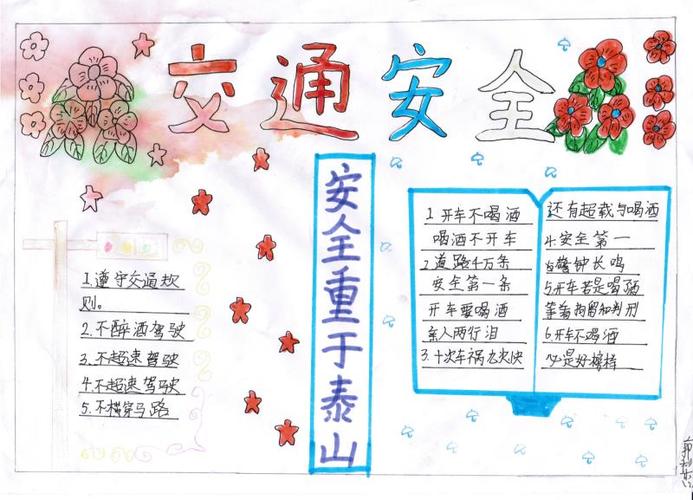 交通安全
安全重于泰山
1.遵守交通规
则。
2.不醉酒驾驶
3.不超速驾驶
4.不超速驾驶
5.不横穿马路
1 开车不喝酒
喝酒不开车
2 道路千万条
安全第一条
开车要喝酒
亲人两行泪
3.十次车祸九次快
还有超载与喝酒
4.安全第一
警钟长鸣
5开车若是喝酒
等着拘留和判刑
6开车不喝酒
是好榜样